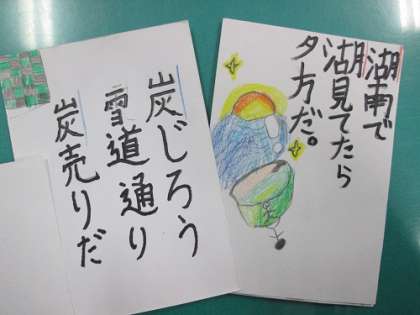 湖南で
湖見てたら
夕方だ。
炭じろう
雪道通り
炭売りだ